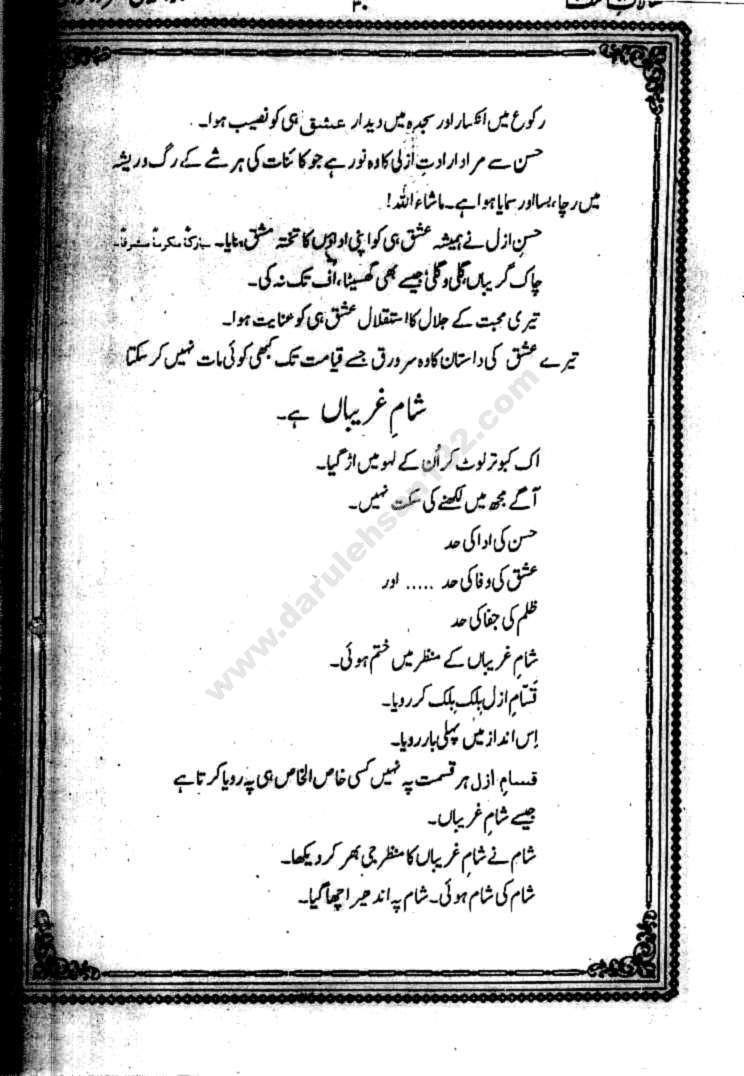 ۳۰
رکوع میں انکسار اور سجدہ میں دیدار عشق ہی کو نصیب ہوا۔
حسن سے مراد ارادتِ ازلی کا وہ نور ہے جو کائنات کی ہر شے کے رگ و ریشہ
میں رچا، بسا اور سمایا ہوا ہے۔ ماشاء اللہ!
حسنِ ازل نے ہمیشہ عشق ہی کو اپنی اداؤں کا تختہ مشق بنایا۔ مبارکاً مکرماً مشرفاً۔
چاک گریباں، گلی و گلی جیسے بھی گھسیٹا، اُف تک نہ کی۔
تیری محبت کے جلال کا استقلال عشق ہی کو عنایت ہوا۔
تیرے عشق کی داستان کا وہ سرورق جسے قیامت تک کبھی کوئی مات نہیں کر سکتا
شامِ غریباں ہے۔
اک کبوتر لوٹ کر اُن کے لہو میں اڑ گیا۔
آگے مجھ میں لکھنے کی سکت نہیں۔
حسن کی ادا کی حد
عشق کی وفا کی حد ..... اور
ظلم کی جفا کی حد
شامِ غریباں کے منظر میں ختم ہوئی۔
قسّامِ ازل بِلک بِلک کر رویا۔
اِس انداز میں پہلی بار رویا۔
قسامِ ازل ہر قسمت پہ نہیں کسی خاص الخاص ہی پہ رویا کرتا ہے
جیسے شامِ غریباں۔
شام نے شامِ غریباں کا منظر جی بھر کر دیکھا۔
شام کی شام ہوئی۔ شام پہ اندھیرا چھا گیا۔
www.darulehsan122.com